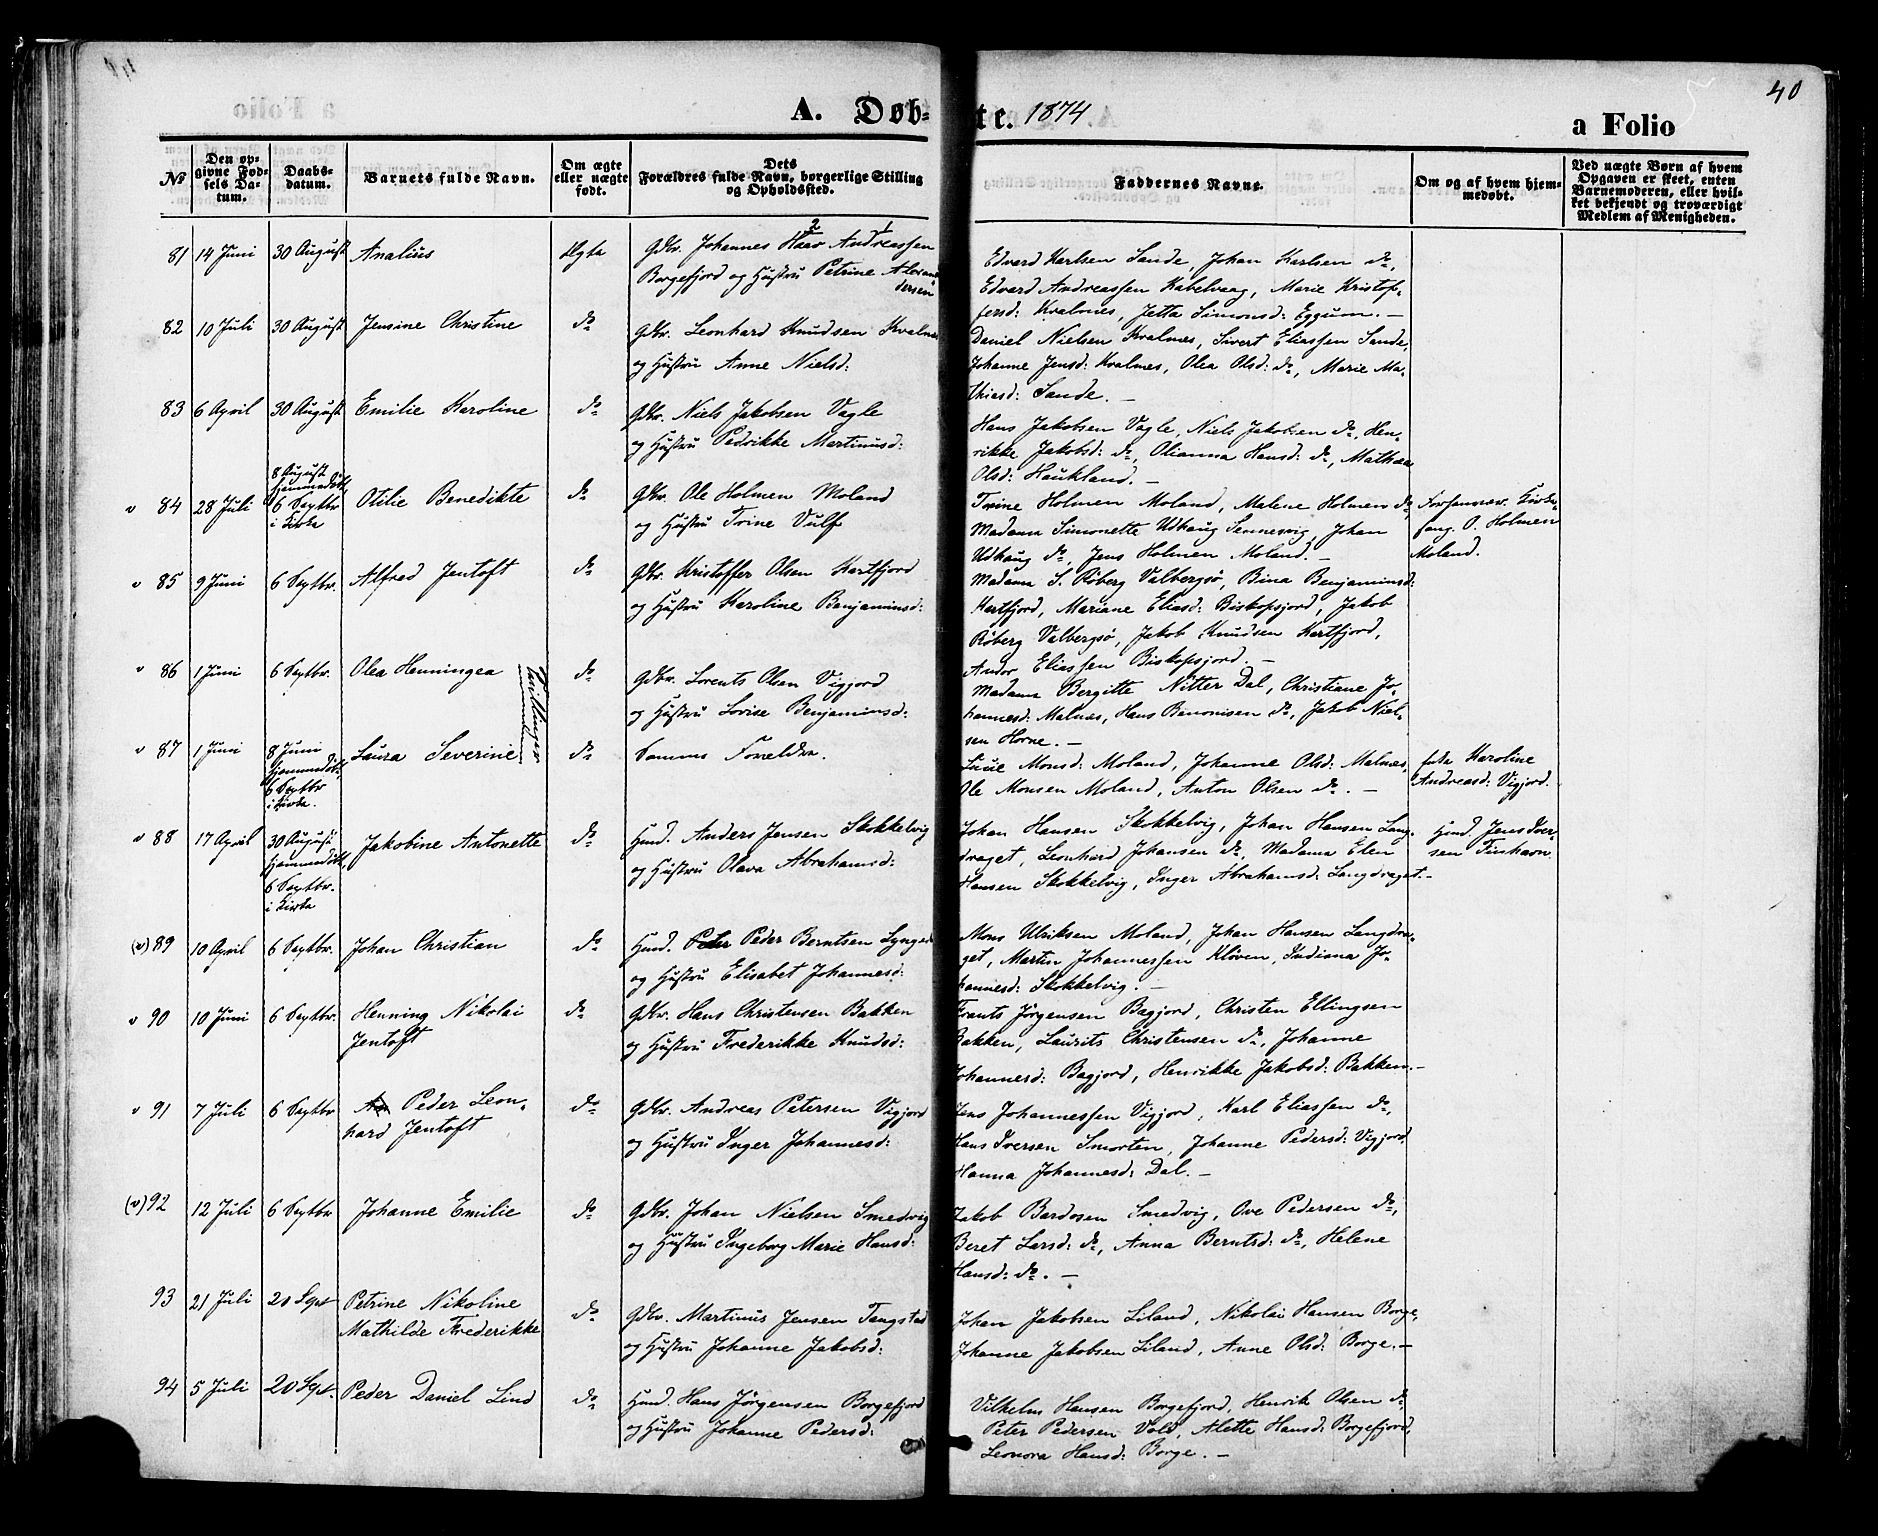 40
A. Døbte. 1874
a Folio
№
Den opgivne Fødsels Datum.
Daabsdatum.
Barnets fulde Navn.
Om ægte eller uægte født.
Dets Forældres fulde Navn, borgerlige Stilling og Opholdssted.
Faddernes Navne.
Om og af hvem hjemmedøbt.
Ved uægte Børn af hvem Opgaven er skeet, enten Barnemoderen, eller hvilket bekjendt og troværdigt Medlem af Menigheden.
81 14 Juni 30 August Analius Ægte
Gdbr. Johannes Haar Andreassen
Borgefjord og Hustru Petrine Alexan
dersen
Edvard Karlsen Sande, Johan Karlsen do,
Edvard Andreassen Kabelvaag, Marie Kristof-
fersd: Kvalnes, Jetta Simonsd: Eggum. —
82 10 Juli 30 August Jensine Christine do
Gdbr. Leonhard Knudsen Kvalnes
og Hustru Anne Nielsd:
Daniel Nielsen Kvalnes, Sivert Eliassen Sande,
Johanne Jensd: Kvalnes, Olea Olsd: do, Marie Ma-
thiasd: Sande. —
83 6 April 30 August Emilie Karoline do
Gdbr. Niels Jakobsen Vagle
og Hustru Pedrikke Martinusd:
Hans Jakobsen Vagle, Niels Jakobsen do, Hen-
rikke Jakobsd: do, Olianna Hansd: do, Mathea
Olsd: Haukland. —
v 84 28 Juli
8 August
Hjemmedøbt
6 Septbr
i Kirke
Otilie Benedikte do
Gdbr. Ole Holmen Moland
og Hustru Trine Vulf
Trine Holmen Moland, Malene Holmen do,
Madama Simonette Udkaug Sennesvig, Johan
Udkaug do, Jens Holmen Moland. —
Forhenvær. Kirke-
sang. O. Holmen
Moland.
v 85 9 Juni 6 Septbr. Alfred Jentoft do
Gdbr. Kristoffer Olsen Kartfjord
og Hustru Karoline Benjaminsd:
Madama S. Röberg Valbergsö, Bina Benjaminsd:
Kartfjord, Mariane Eliasd: Biskopsjord, Jakob
Röberg Valbergsö, Jakob Knudsen Kartfjord,
Andor Eliassen Biskopsjord. —
v 86 1 Juni 6 Septbr. Olea Henningea
Tvillinger
do
Gdbr. Lorents Olsen Vigjord
og Hustru Lovise Benjaminsd:
Madama Bergitte Nitter Dal, Christiane Jo-
hannesd: Malnæs, Hans Benonisen do, Jakob Niel-
sen Horne. —
v 87 1 Juni
8 Juni
Hjemmedöbt
6 Septbr
i Kirke.
Laura Severine do
Samme Forældre.
Lucie Monsd: Moland, Johanne Olsd: Malnæs,
Ole Monsen Moland, Anton Olsen do. —
Karoline
Andreasd: Vigjord.
v 88 17 April
30 August
Hjemmedöbt
6 Septbr.
i Kirke
Jakobine Antonette do
Hmd. Anders Jensen Stokkelvig
og Hustru Olava Abrahamsd:
Johan Hansen Stokkelvig, Johan Hansen Lang-
draget, Leonhard Johansen do, Madama Elen
Hansen Stokkelvig, Inger Abrahamsd: Langdraget. —
Hmd. Jens Iver-
sen Finhavn
(v) 89 10 April 6 Septbr. Johan Christian do
Hmd. Peder Berntsen Lynged
og Hustru Elisabet Johannesd:
Mons Ulriksen Moland, Johan Hansen Langdra-
get, Martin Johannessen Klöven, Indiana Jo-
hannesd: Stokkelvig. —
v 90 10 Juni 6 Septbr. Henning Nikolai
Jentoft
do
Gdbr. Hans Christensen Bakken
og Hustru Frederikke Knudsd:
Frants Jörgensen Bagjord, Christen Ellingsen
Bakken, Laurits Christensen do, Johanne
Johannesd: Bagjord, Henrikke Jakobsd: Bakken. —
v 91 7 Juli 6 Septbr Peder Leon-
hard Jentoft
do
Gdbr. Andreas Petersen Vigjord
og Hustru Inger Johannesd:
Jens Johannessen Vigjord, Karl Eliassen do,
Hans Iversen Smorten, Johanne Pedersd: Vigjord
Hanna Johannesd: Dal. —
(v) 92 12 Juli 6 Septbr Johanne Emilie do
Gdbr. Johan Nielsen Smedvig
og Hustru Ingeborg Marie Hansd:
Jakob Bardosen Smedvig, Ove Pedersen do,
Beret Larsd: do, Anna Berntsd: do, Helene
Hansd: do. —
93 21 Juli 20 Sept Petrine Nikoline
Mathilde Frederikke
do
Gdbr. Martinus Jensen Tangstad
og Hustru Johanne Jakobsd:
Johan Jakobsen Liland, Nikolai Hansen Borge,
Johanne Jakobsen Liland, Anne Olsd: Borge. —
94 5 Juli 20 Sept. Peder Daniel Lind do
Hmd. Hans Jörgensen Borgefjord
og Hustru Johanne Pedersd:
Vilhelm Hansen Borgefjord, Henrik Olsen do,
Peter Pedersen Vold, Alette Hansd: Borgefjord,
Leonora Hansd: Borge. —